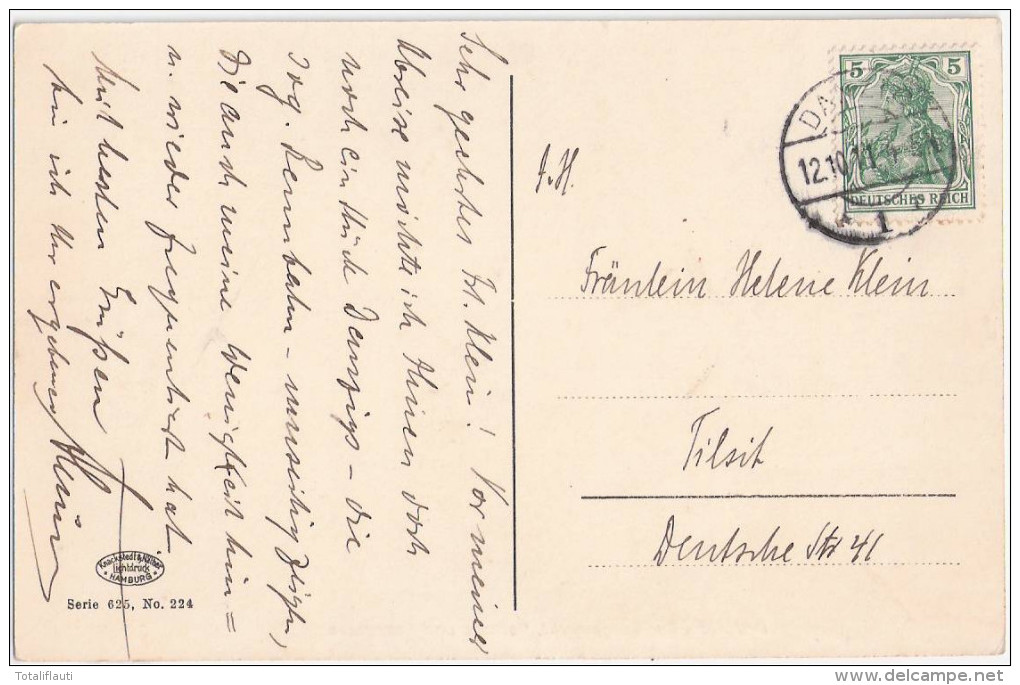 Sehr geehrtes Frl. Klein! Vor meiner
Abreise möchte ich Ihnen doch
noch ein Stück Danzigs - die
sog. Rennbahn -
die auch meine Wenigkeit hin=
u. wieder frequentiert hat
Mit besten Grüßen
bin ich Ihr ergebener
5 5
DEUTSCHES REICH
DA
12.10.11
1
Fräulein Helene Klein
Tilsit
Deutsche Str 41
Knackstedt & Näther
Lichtdruck
HAMBURG
Serie 625, No. 224
Totaliflauti
delcampe.net